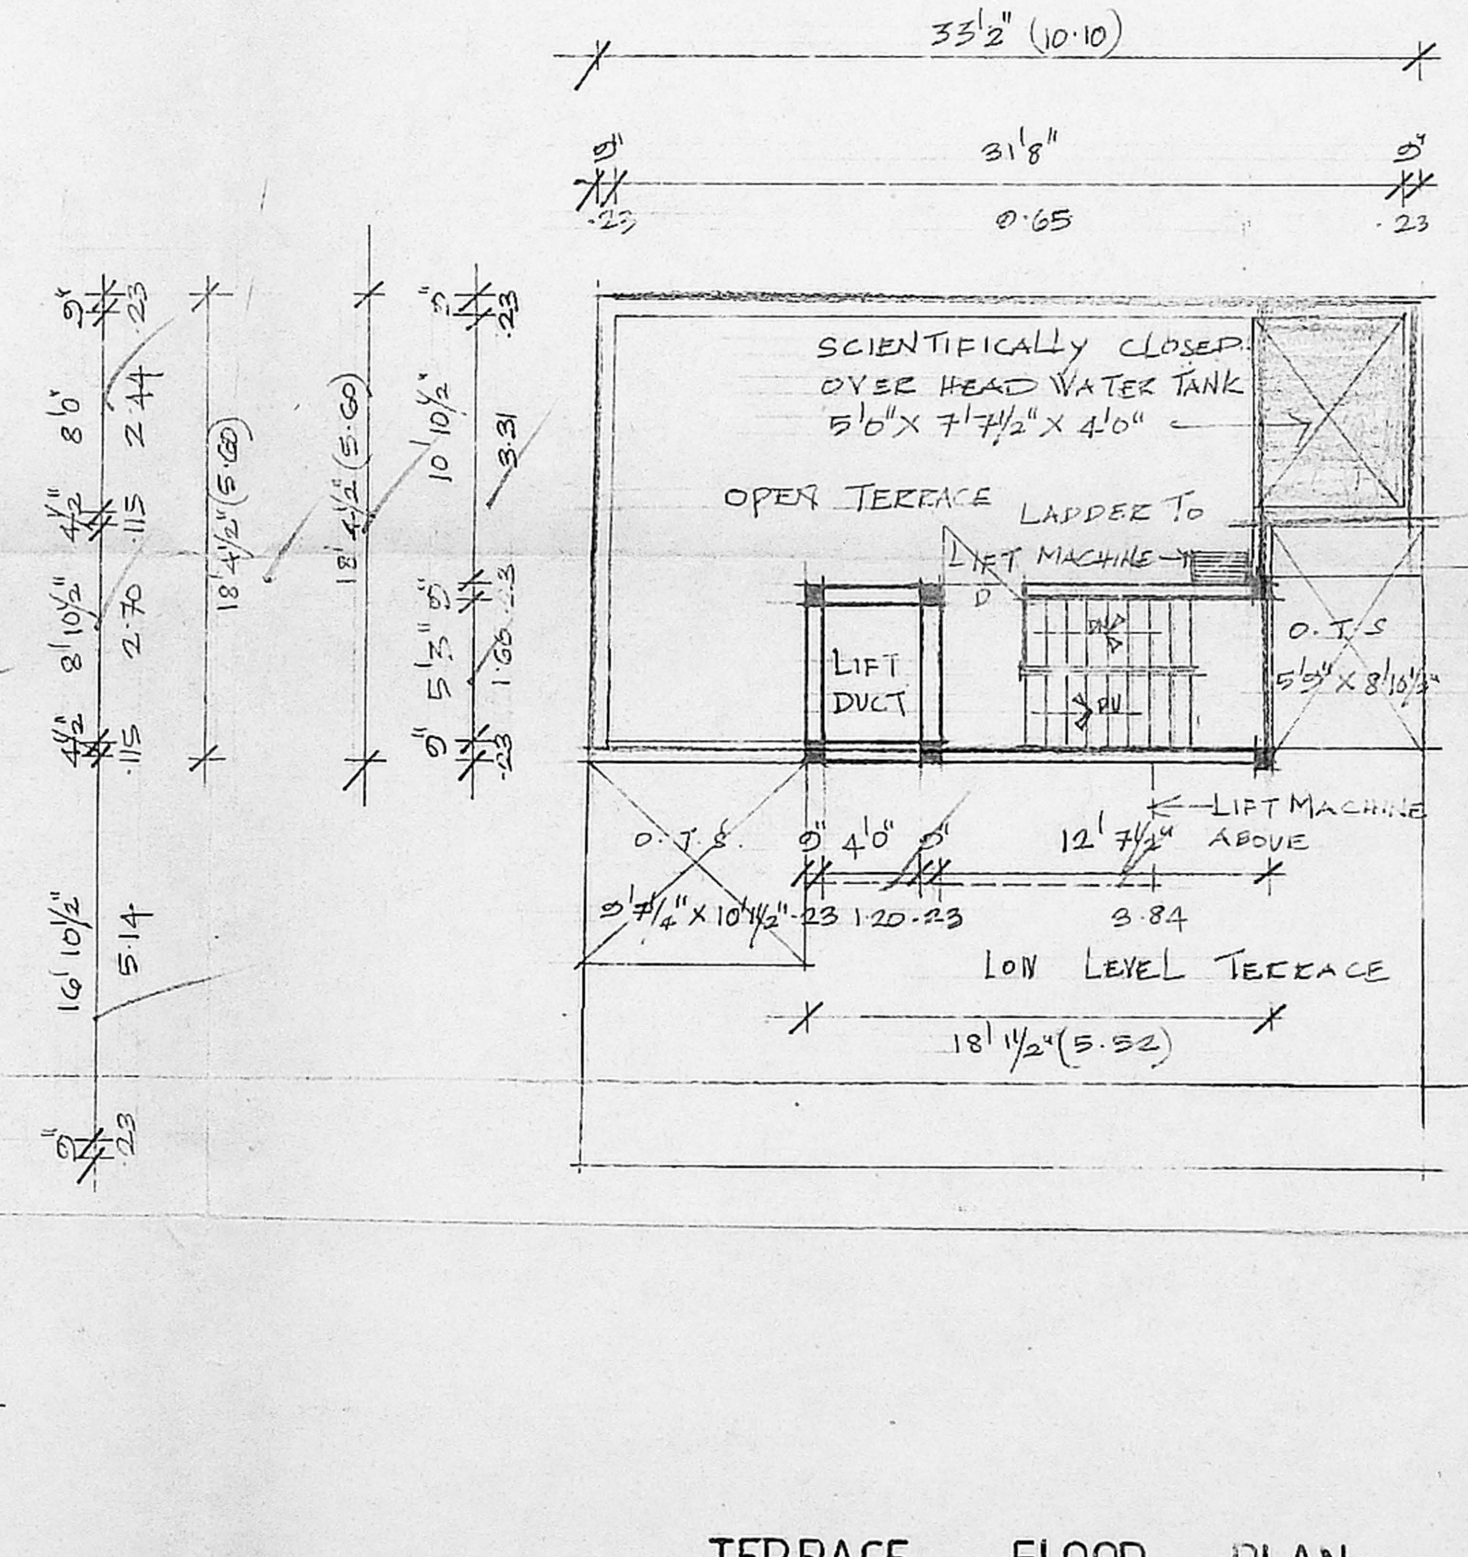 33'2" (10.10)
9" 31'8" 9"
.23 9.65 .23
9" 8'0" 4½" 8'10½" 4½" 16'10½" 9"
.23 2.44 .115 2.70 .115 5.14 .23
18'4½" (5.60)
18'4½" (5.60)
9" 10'10½" 9" 5'3" 9"
.23 3.31 .23 1.60 .23
SCIENTIFICALLY CLOSED
OVER HEAD WATER TANK
5'0" X 7'7½" X 4'0"
OPEN TERRACE
LADDER TO
LIFT MACHINE
D
LIFT
DUCT
DN
DN
O.T.S
5'9" X 8'10½"
LIFT MACHINE
ABOVE
O.T.S.
9" 4'0" 9" 12'7½"
.23 1.20 .23 3.84
LOW LEVEL TERRACE
18'1½" (5.52)
TERRACE FLOOR PLAN